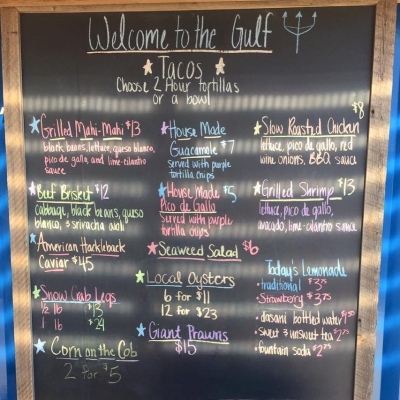 Welcome to the Gulf
Tacos
Choose 2 flour tortillas
or a bowl
Grilled Mahi-Mahi $13
black beans, lettuce, queso blanco,
pico de gallo, and lime-cilantro
sauce
Beef Brisket $12
cabbage, black beans, queso
blanco, & sriracha aioli
American Hackleback
Caviar $45
Snow Crab Legs
1/2 lb $13
1 lb $24
Corn on the Cob
2 for $5
House Made
Guacamole $7
served with purple
tortilla chips
House Made $5
Pico De Gallo
Served with purple
tortilla chips
Seaweed Salad $6
Local Oysters
6 for $11
12 for $23
Giant Prawns
$15
$8
Slow Roasted Chicken
lettuce, pico de gallo, red
wine onions, BBQ sauce
Grilled Shrimp $13
lettuce, pico de gallo,
avocado, lime-cilantro sauce
Today's Lemonade
traditional $3.75
Strawberry $3.75
dasani bottled water
sweet & unsweet tea $2.75
fountain soda $2.75